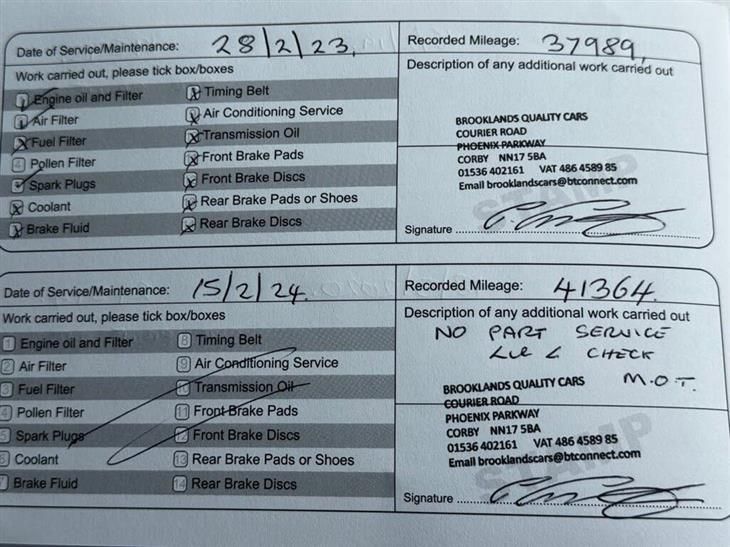 Date of Service/Maintenance: 28/2/23.
Recorded Mileage: 37989.
Work carried out, please tick box/boxes
Description of any additional work carried out
Engine oil and Filter
Timing Belt
Air Filter
Air Conditioning Service
Fuel Filter
Transmission Oil
4 Pollen Filter
Front Brake Pads
Spark Plugs
Front Brake Discs
Coolant
Rear Brake Pads or Shoes
Brake Fluid
Rear Brake Discs
BROOKLANDS QUALITY CARS
COURIER ROAD
PHOENIX PARKWAY
CORBY NN17 5BA
01536 402161 VAT 486 4589 85
Email brooklandscars@btconnect.com
STAMP
Signature
Date of Service/Maintenance: 15/2/24.
Recorded Mileage: 41364.
Work carried out, please tick box/boxes
Description of any additional work carried out
1 Engine oil and Filter
8 Timing Belt
2 Air Filter
9 Air Conditioning Service
3 Fuel Filter
10 Transmission Oil
4 Pollen Filter
11 Front Brake Pads
5 Spark Plugs
12 Front Brake Discs
6 Coolant
13 Rear Brake Pads or Shoes
7 Brake Fluid
14 Rear Brake Discs
NO PART SERVICE
CHECK
M.O.T.
BROOKLANDS QUALITY CARS
COURIER ROAD
PHOENIX PARKWAY
CORBY NN17 5BA
01536 402161 VAT 486 4589 85
Email brooklandscars@btconnect.com
STAMP
Signature